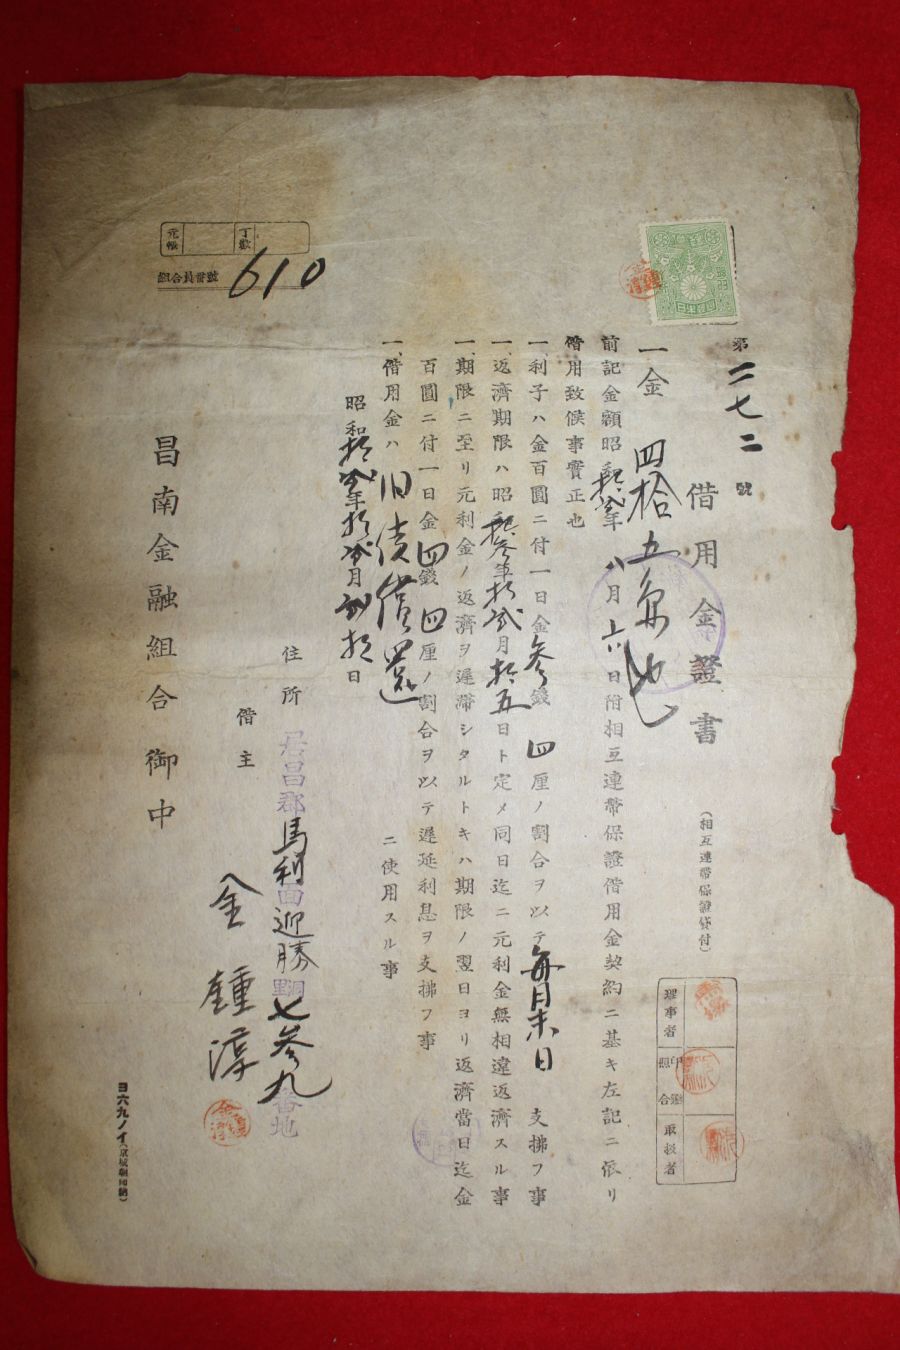 第二七二號
借用金證書
(相互連帶保證貸付)
理事者
印鑑照合
取扱者
一金 四拾五圓也
前記金額昭和拾貳年八月十六日附相互連帶保證借用金契約ニ基キ左記ニ依リ
借用致候事實正也
一、利子ハ金百圓ニ付一日金參錢四厘ノ割合ヲ以テ每月末日支拂フ事
一、返濟期限ハ昭和拾參年拾貳月拾五日ト定メ同日迄ニ元利金無相違返濟スル事
一、期限ニ至リ元利金ノ返濟ヲ遲滯シタルトキハ期限ノ翌日ヨリ返濟當日迄金
百圓ニ付一日金四錢四厘ノ割合ヲ以テ遲延利息ヲ支拂フ事
一、借用金ハ旧債償還ニ使用スル事
昭和拾貳年拾貳月貳拾日
住所 居昌郡馬利面迎勝洞七參九番地
借主 金鍾淳
昌南金融組合御中
元帳
丁數
組合員番號 610
ヨ六九ノイ